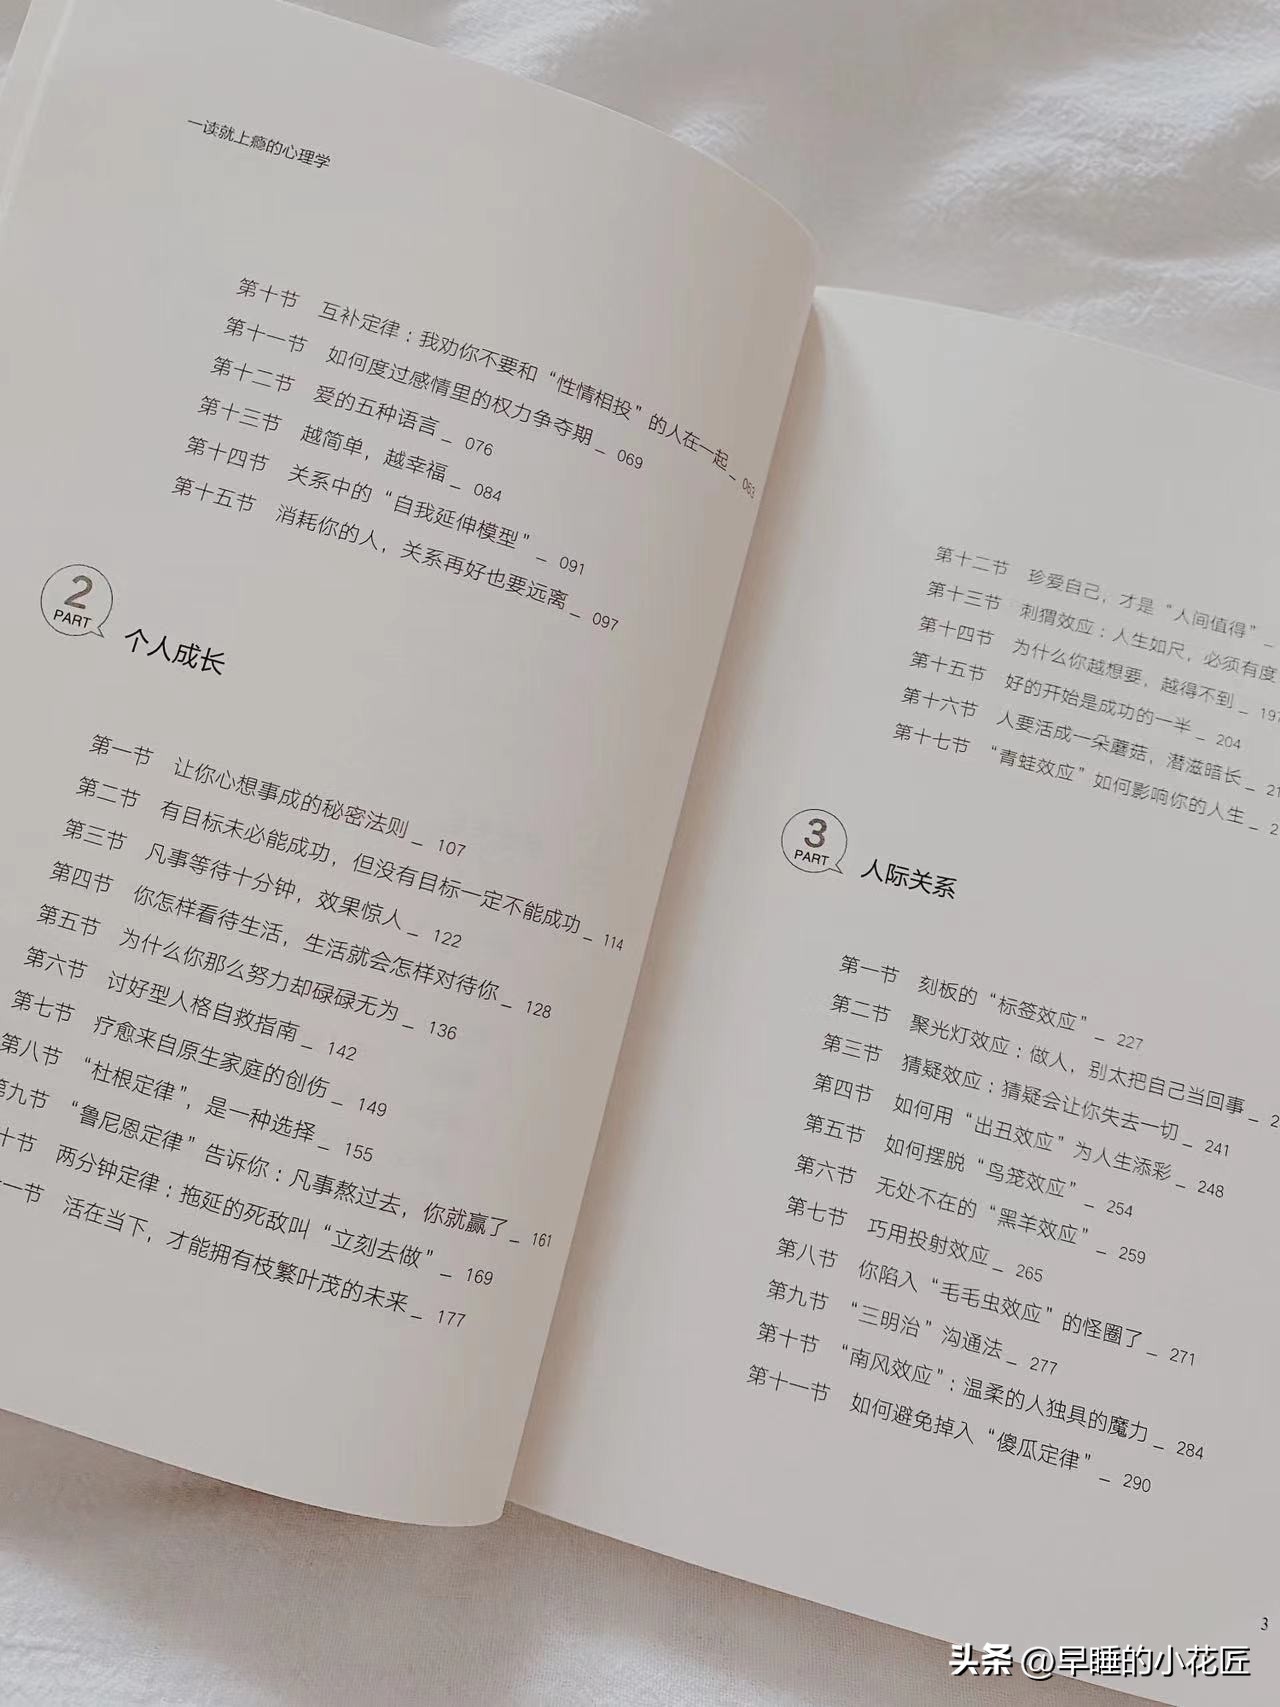 一读就上瘾的心理学
第十节 互补定律：我劝你不要和“性情相投”的人在一起_ 063
第十一节 如何度过感情里的权力争夺期_ 069
第十二节 爱的五种语言_ 076
第十三节 越简单，越幸福_ 084
第十四节 关系中的“自我延伸模型”_ 091
第十五节 消耗你的人，关系再好也要远离_ 097
2
PART
个人成长
第一节 让你心想事成的秘密法则_ 107
第二节 有目标未必能成功，但没有目标一定不能成功_ 114
第三节 凡事等待十分钟，效果惊人_ 122
第四节 你怎样看待生活，生活就会怎样对待你_ 128
第五节 为什么你那么努力却碌碌无为_ 136
第六节 讨好型人格自救指南_ 142
第七节 疗愈来自原生家庭的创伤_ 149
第八节 “杜根定律”，是一种选择_ 155
第九节 “鲁尼恩定律”告诉你：凡事熬过去，你就赢了_ 161
十节 两分钟定律：拖延的死敌叫“立刻去做”_ 169
一节 活在当下，才能拥有枝繁叶茂的未来_ 177
第十二节 珍爱自己，才是“人间值得”_
第十三节 刺猬效应：人生如尺，必须有度
第十四节 为什么你越想要，越得不到_ 197
第十五节 好的开始是成功的一半_ 204
第十六节 人要活成一朵蘑菇，潜滋暗长_ 21
第十七节 “青蛙效应”如何影响你的人生_ 2
3
PART
人际关系
第一节 刻板的“标签效应”_ 227
第二节 聚光灯效应：做人，别太把自己当回事_ 2
第三节 猜疑效应：猜疑会让你失去一切_ 241
第四节 如何用“出丑效应”为人生添彩_ 248
第五节 如何摆脱“鸟笼效应”_ 254
第六节 无处不在的“黑羊效应”_ 259
第七节 巧用投射效应_ 265
第八节 你陷入“毛毛虫效应”的怪圈了_ 271
第九节 “三明治”沟通法_ 277
第十节 “南风效应”：温柔的人独具的魔力_ 284
第十一节 如何避免掉入“傻瓜定律”_ 290
3
头条 @早睡的小花匠